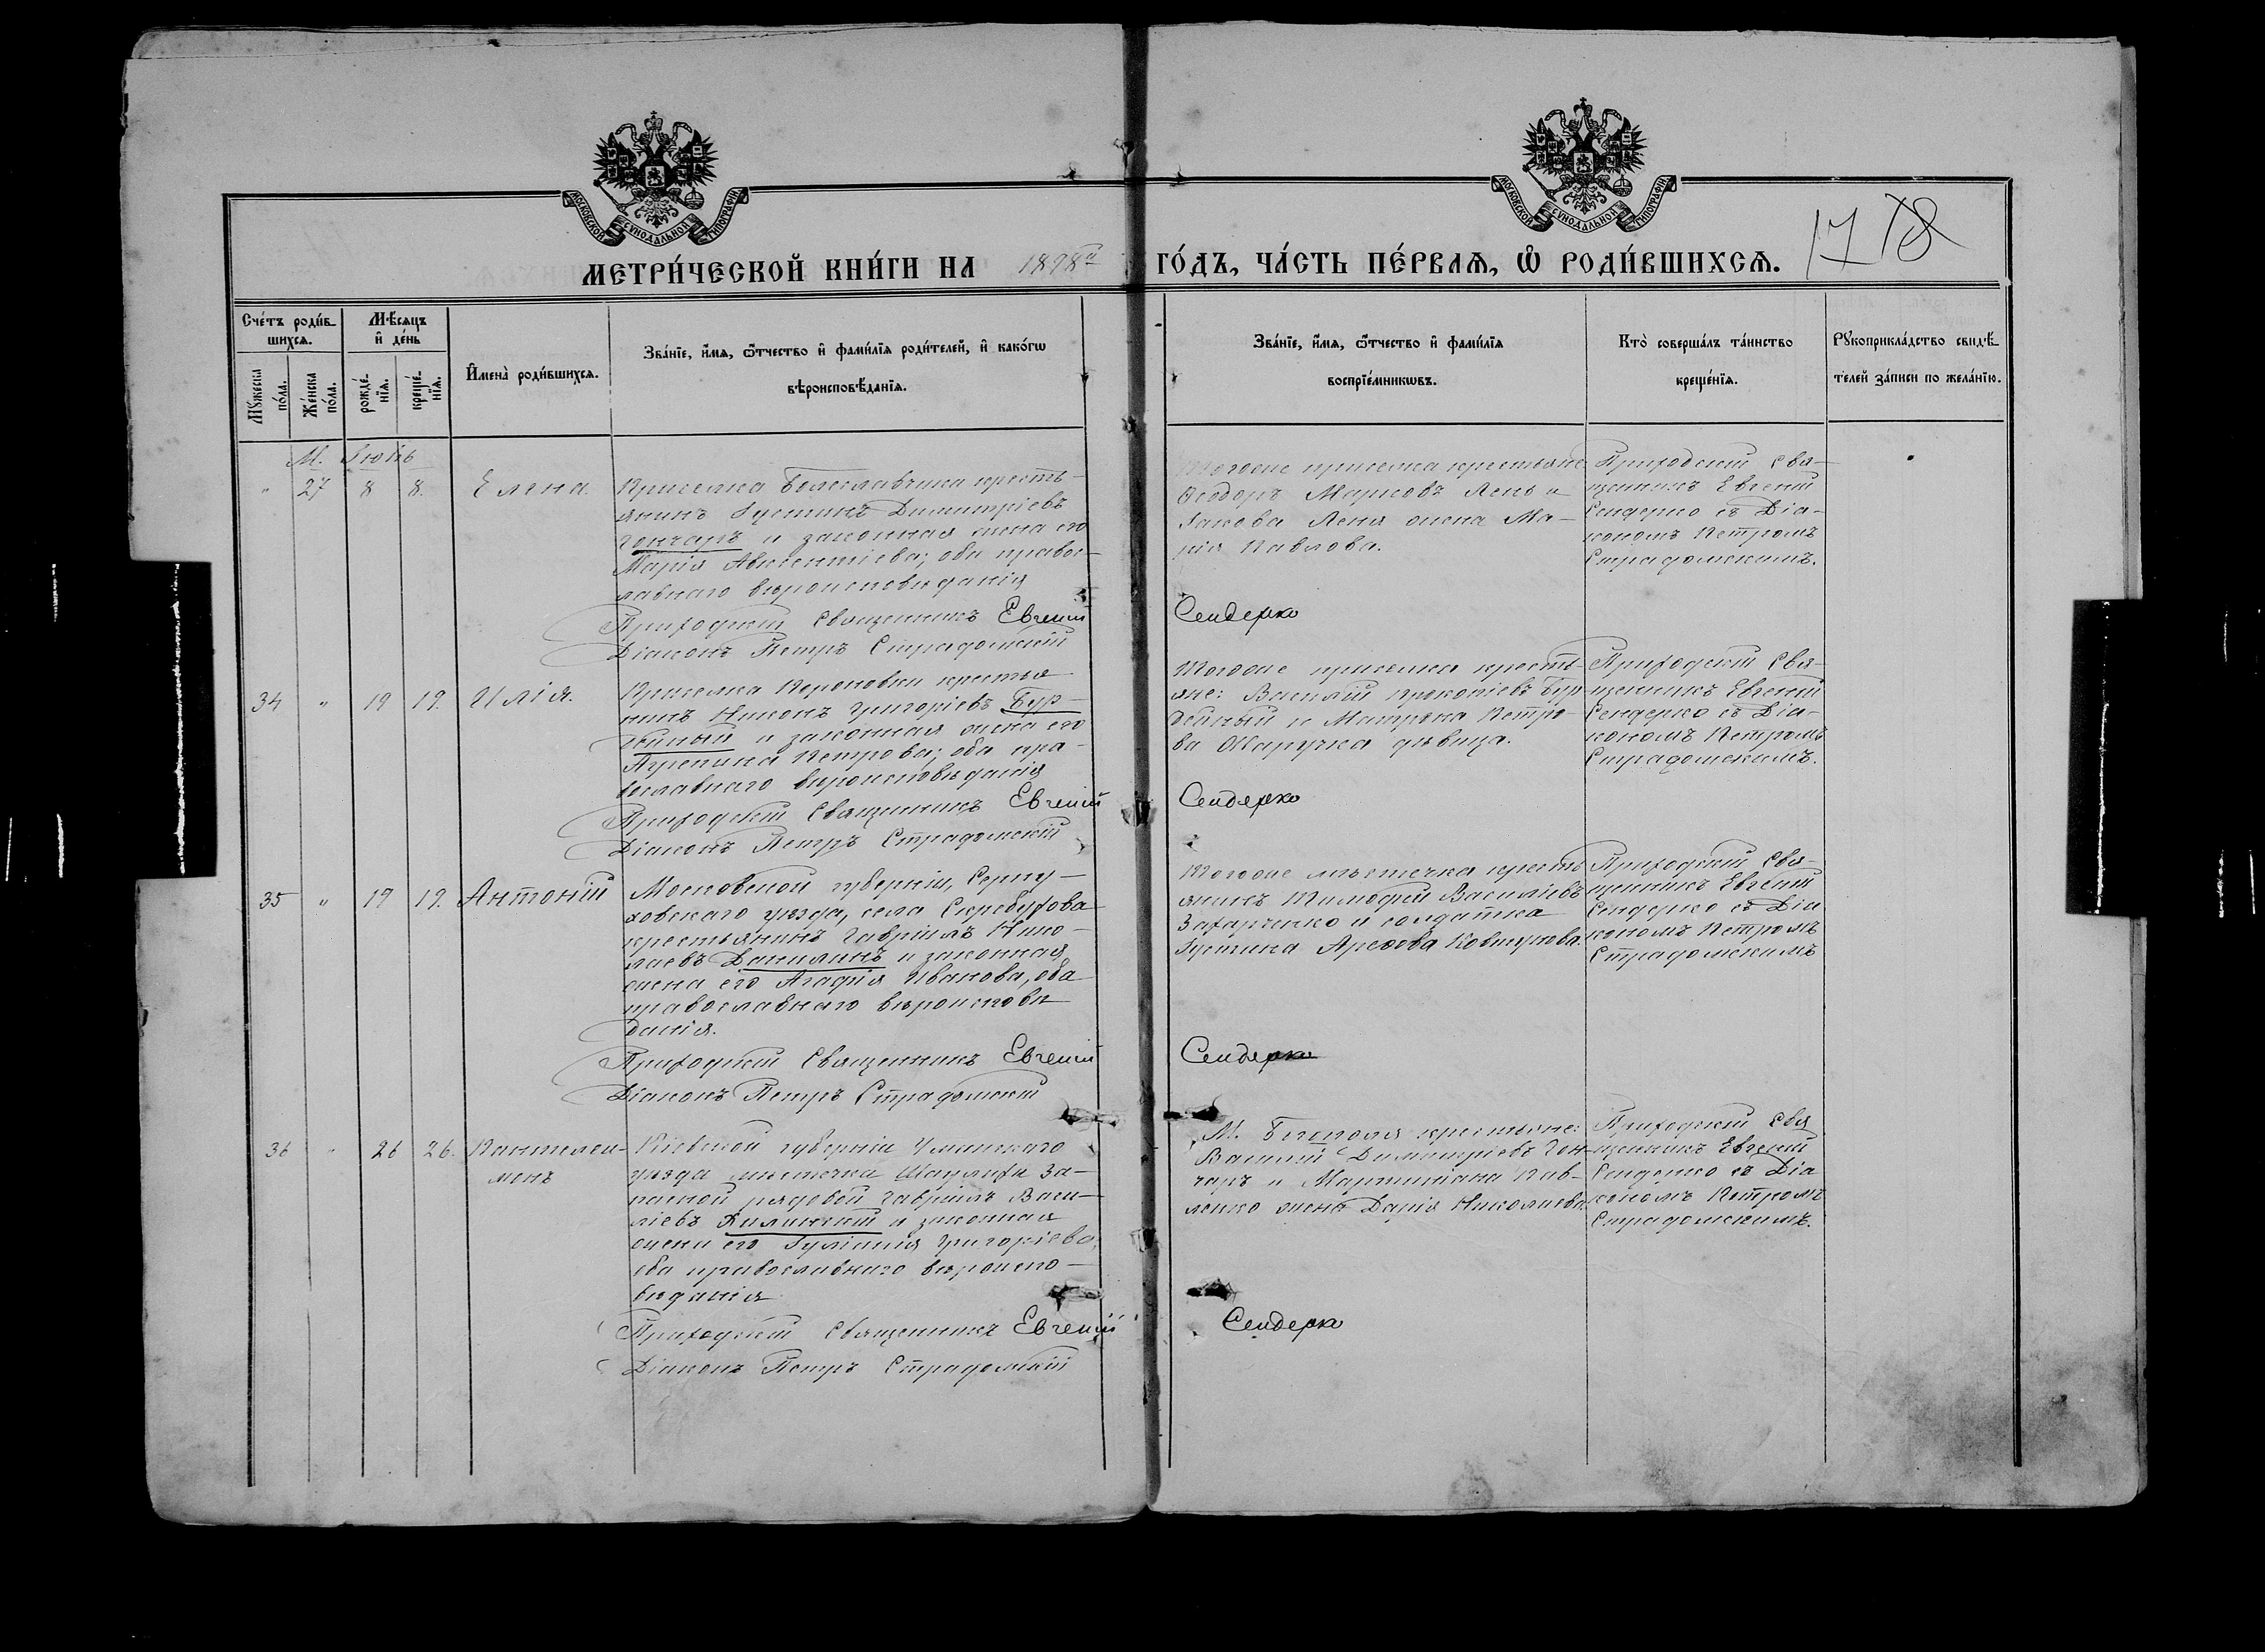 МОСКОВСКОЙ СѴНОДАЛЬНОЙ ТИПОГРАФІИ
МОСКОВСКОЙ СѴНОДАЛЬНОЙ ТИПОГРАФІИ
17 18
МЕТРИ́ЧЕСКОЙ КНИ́ГИ НА 1898й ГО́ДЪ, ЧА́СТЬ ПЕ́РВАѦ, Ѡ РОДИ́ВШИХСѦ.
Сче́тъ роди́в-
шихсѧ.
Мꙋжеска по́ла.
Же́нска по́ла.
Мѣ́сяцъ и де́нь
рожде́-нїѧ.
креще́-нїѧ.
И҆мена̀ роди́вшихсѧ.
Зва́нїе, и҆́мѧ, ѻ҆́тчество и҆ фами́лїѧ роди́телей, и҆ како́гѡ
вѣроисповѣ́данїѧ.
Зва́нїе, и҆́мѧ, ѻ҆́тчество и҆ фами́лїѧ
воспрїе́мникѡвъ.
Кто̀ соверша́лъ та́инство
креще́нїѧ.
Рꙋкоприкла́дство свидѣ́-
телей за́писи по жела́нїю.
М. Іюль
" 27 8 8. Елена.
Приселка Болеславчика кресть-
янинъ Іустинъ Димитріевъ
Гончаръ и законная жена его
Марія Авксентіева; оба правос-
лавнаго вѣроисповѣданія
Приходскій Священникъ Евгеній Сендерко
Діаконъ Петръ Страдомскій
Тогоже приселка крестьяне
Ѳеодоръ Марковъ Лень и
Іакова Леня жена Ма-
рія Павлова.
Приходскій Свя-
щенникъ Евгеній
Сендерко съ Діа-
кономъ Петромъ
Страдомскимъ.
34 " 19 19. Илія.
Приселка крестья
нинъ Никонъ Григоріевъ Бур-
дейный и законная жена его
Агрепина Петрова; оба пра-
вославнаго вѣроисповѣданія
Приходскій Священникъ Евгеній Сендерко
Діаконъ Петръ Страдомскій
Тогоже приселка кресть-
яне: Василій Прокопіевъ Бур-
дейный и Матрона Петро-
ва дѣвица.
Приходскій Свя-
щенникъ Евгеній
Сендерко съ Діа-
кономъ Петромъ
Страдомскимъ.
35 " 19 19. Антоній
Московской губерніи, Серпу-
ховскаго уѣзда, села Скребухова
крестьянинъ Гавріилъ Нико-
лаевъ Данилинъ и законная
жена его Агафія Иванова, оба
православнаго вѣроисповѣ
данія.
Приходскій Священникъ Евгеній Сендерко
Діаконъ Петръ Страдомскій
Тогоже мѣстечка кресть
янинъ Тимофей Василіевъ
Захарченко и солдатка
Іустина Ковтунова.
Приходскій Свя-
щенникъ Евгеній
Сендерко съ Діа
кономъ Петромъ
Страдомскимъ
36 " 26 26. Пантелеи-
монъ
Кіевской губерніи Уманскаго
уѣзда мѣстечка за-
пасной рядовой Гавріилъ Васи-
ліевъ и законная
жена его Іуліанія Григоріева,
оба православнаго вѣроиспо-
вѣданія
Приходскій Священникъ Евгеній Сендерко
Діаконъ Петръ Страдомскій
М. Богополя крестьяне:
Василій Димитріевъ Гон-
чаръ и Мартиніана Пав-
ленко жена Дарія Николаева.
Приходскій Свя
щенникъ Евгеній
Сендерко съ Діа
кономъ Петромъ
Страдомскимъ.